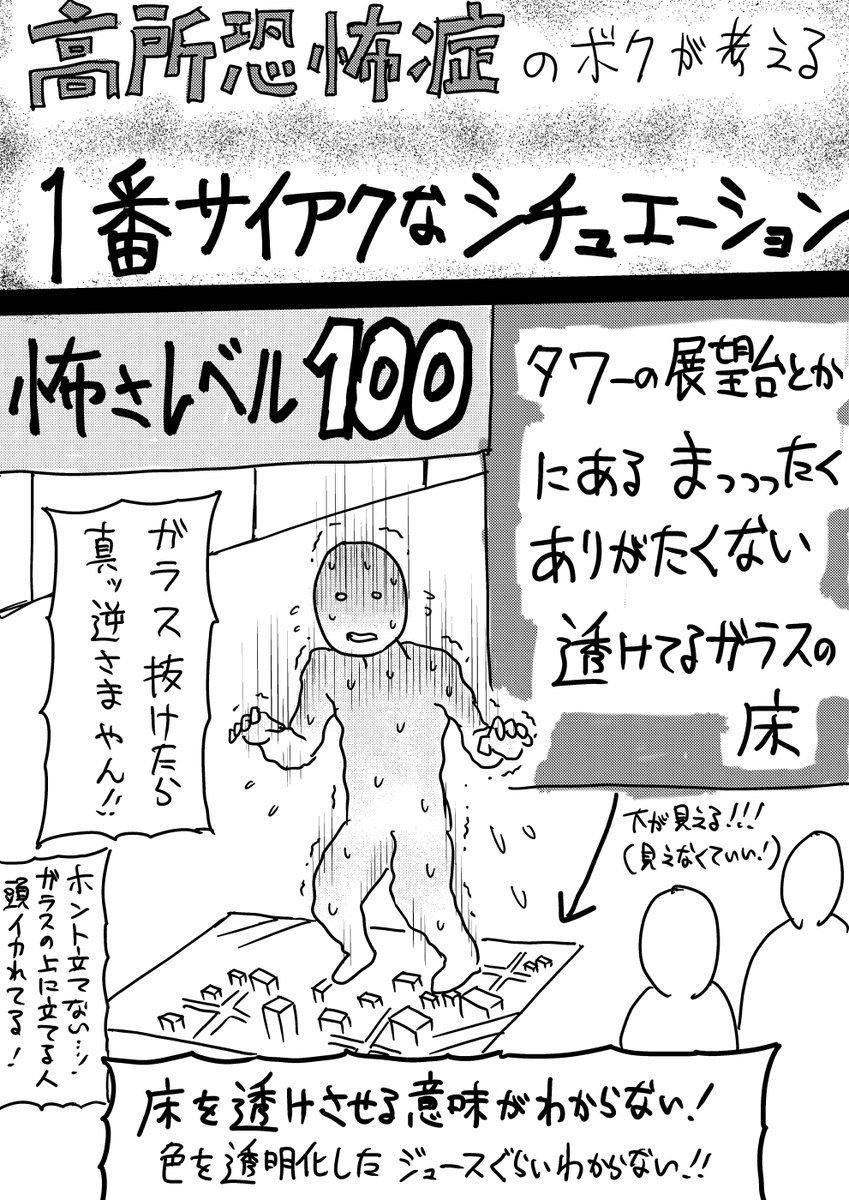 高所恐怖症のボクが考える
1番サイアクなシチュエーション
怖さレベル100
タワーの展望台とか
にある まっっったく
ありがたくない
透けてるガラスの
床
ガラス抜けたら
真ッ逆さまやん!!
下が見える!!!
(見えなくていい!)
ホント立てない…!
ガラスの上に立てる人
頭イカれてる!
床を透けさせる意味がわからない!
色を透明化したジュースぐらいわからない!!